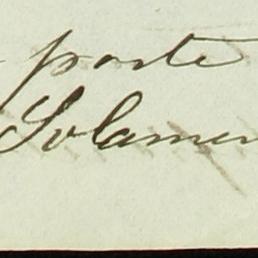 porte
Solamen